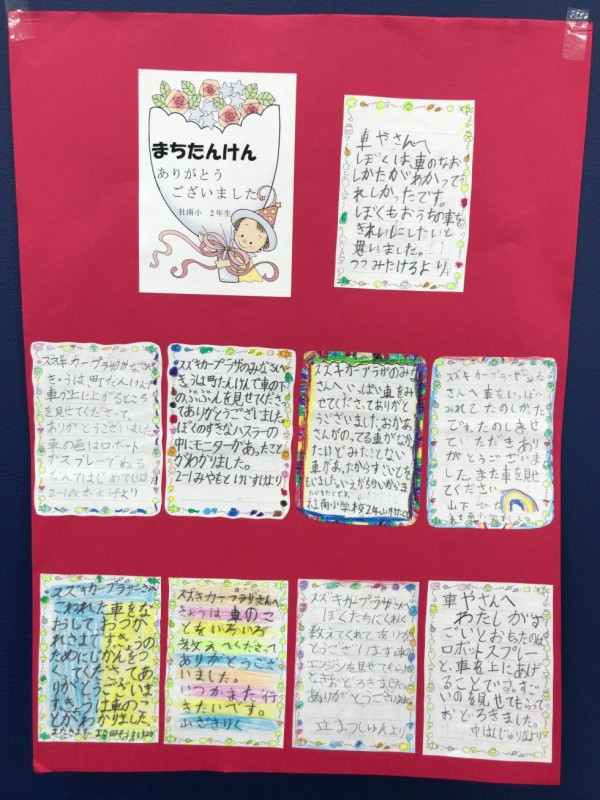 まちたんけん
ありがとう
ございました。
社南小 2年生
車やさんへ
ぼくは、車のなお
しかたがわかって
れしかったです。
ぼくもおうちの車も
きれいにしたいと
思いました。
つつみたけるより
スズキカープラザのみなさんへ
きょうは町たんけんで
車が上に上がるところ
を見せてくださって
ありがとうございました。
車の色はロボット
がスプレーでぬる
なんてはじめて
2-1
スズキカープラザのみなさんへ
きょうは町たんけんで車の下
のぶぶんを見せてくださっ
てありがとうございました。
ぼくのすきなハスラーの
中にモニターがあったこと
がわかりました。
2-1みやもとけいすけより
スズキカープラザのみな
さんへいっぱい車をみ
せてくださってありがと
うございました。おかあ
さんがのってる車がなか
ったけどみたことない
車があったからすごいとお
もいました。
社南小学校2年
スズキカープラザのみな
さんへ車をいっぱい
みれてたのしかった
です。たのしませ
ていただきあり
がとうございま
した。また車を見せ
てください
山下
スズキカープラザさんへ
こわれた車をな
おして、おつか
れさまです。きょうの
ためにじかんをつ
くってくださってあ
りがとうございま
す。きょうは車のこ
とがわかりました。
スズキカープラザさんへ
きょうは車のこ
とをいろいろ
教えてくださって
ありがとうござ
いました。
いつかまた行
きたいです。
山ざきりく
スズキカープラザさんへ
ぼくたちにくわしく
教えてくれてありが
とうございます。車の
エンジンを見せてもらった
ときおどろきました。
ありがとうございました
立まつしゅんより
車やさんへ
わたしがす
ごいとおもったのは、
ロボットスプレー
と、車を上にあげ
ることです。すご
いのを見せてもらって
おどろきました。